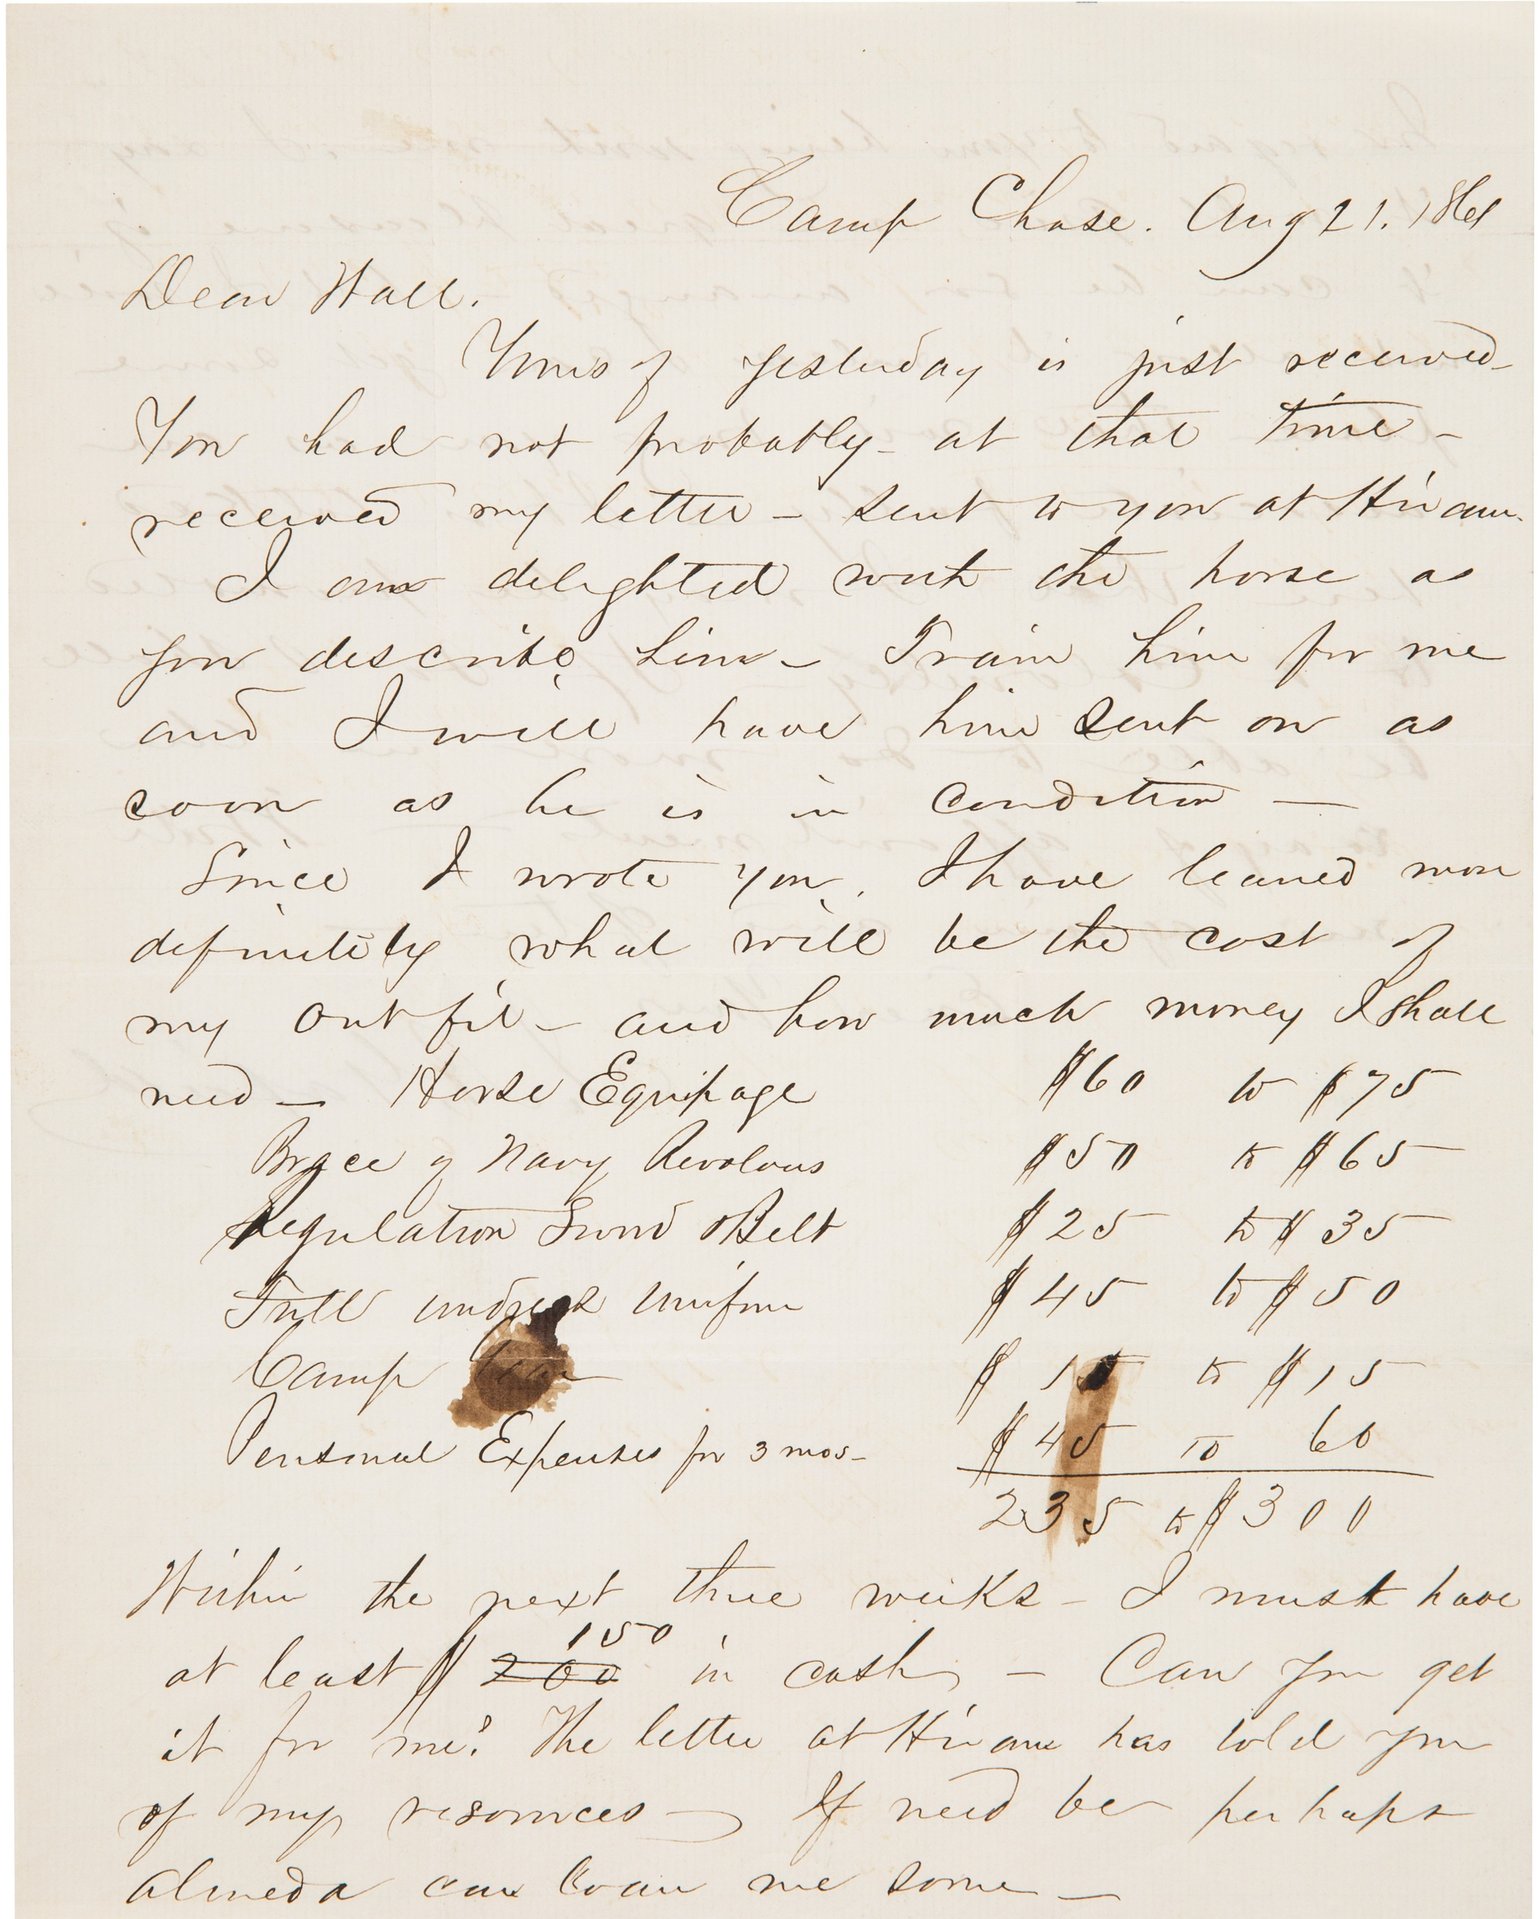 Camp Chase. Aug 21. 1861
Dear Hall.
Yours of yesterday is just received-
You had not probably - at that time -
received my letter - sent to you at Hiram.
I am delighted with the horse as
you describe him - Train him for me
and I will have him sent on as
soon as he is in condition —
Since I wrote you, I have learned more
definitely what will be the cost of
my outfit - and how much money I shall
need — Horse Equipage $60 to $75
Brace of Navy Revolvers $50 to $65
Regulation Sword & Belt $25 to $35
Full undress uniform $45 to $50
Camp $ 10 to $15
Personal Expenses for 3 mos - $45 to 60
235 to $300
Within the next three weeks - I must have
150
at least $ 200 in cash, - Can you get
it for me? The letter at Hiram has told you
of my resources — If need be perhaps
Almeda can loan me some —